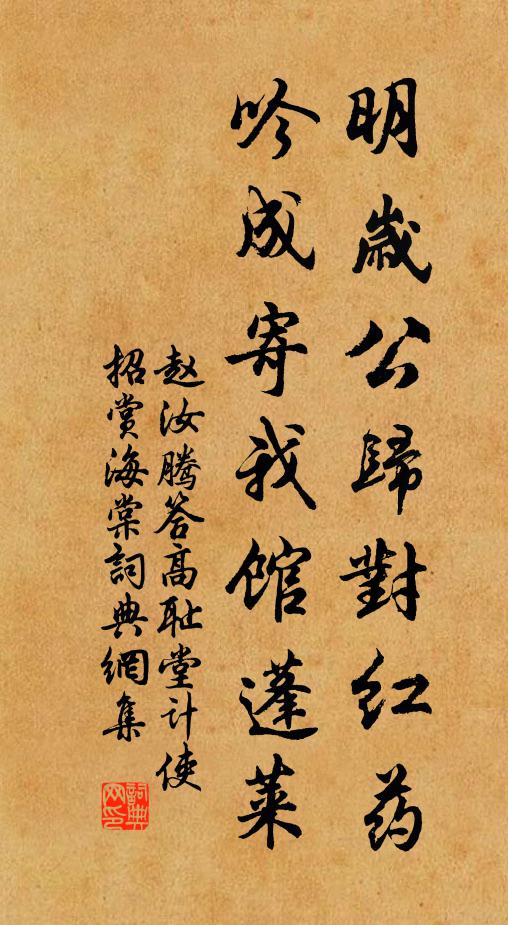 明歳公歸對红药
吟成寄我館蓬莱
赵汝腾答高耻堂计使
招赏海棠詞典網集
詞典网印